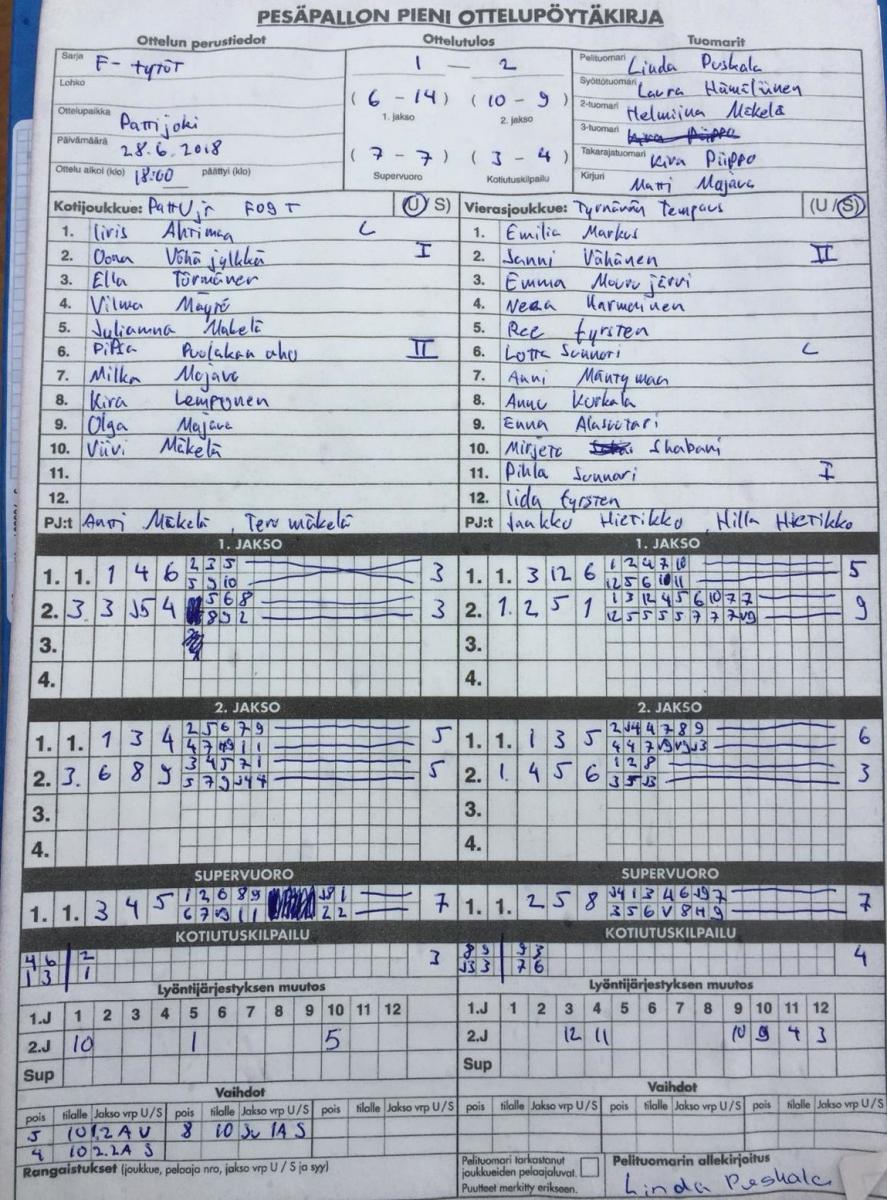 PESÄPALLON PIENI OTTELUPÖYTÄKIRJA
Ottelun perustiedot
Sarja F-tytöt
Lohko
Ottelupaikka Pattijoki
Päivämäärä 28.6.2018
Ottelu alkoi (klo) 18:00 päättyi (klo)
Ottelutulos
1 — 2
(6 - 14) (10 - 9)
1. jakso 2. jakso
(7 - 7) (3 - 4)
Supervuoro Kotiutuskilpailu
Tuomarit
Pelituomari Linda Puskala
Syöttötuomari Laura Hämäläinen
2-tuomari Helmiina Mäkelä
3-tuomari
Takarajatuomari Kira Piippo
Kirjuri Matti Majava
Kotijoukkue: PattUjr F09T (U / S)
1. Iiris Ahtimaa C
2. Oona Vähäjylkkä I
3. Ella Törmänen
4. Vilma Mäyrä
5. Julianna Mäkelä
6. Pihla Puolakanaho II
7. Milka Majava
8. Kira Lemponen
9. Olga Majava
10. Viivi Mäkelä
11.
12.
PJ:t Antti Mäkelä, Tero Mäkelä
Vierasjoukkue: Tyrnävän Tempaus (U / S)
1. Emilia Markus
2. Sanni Vähänen II
3. Emma Mourujärvi
4. Neea Karmainen
5. Ree Tyrsten
6. Lotta Sunnari C
7. Anni Mäntymaa
8. Annu Korkala
9. Enna Alasuutari
10. Mirjeta Shabani
11. Pihla Sunnari I
12. Iida Tyrsten
PJ:t Jaakko Hietikko, Hilla Hietikko
1. JAKSO
1. 1. 1 4 6 2 3 5 3
5 9 10
2. 3. 3 J5 4 5 6 8 3
8 9 2
3.
4.
1. JAKSO
1. 1. 3 12 6 1 2 4 7 10 5
12 5 6 10 11
2. 1. 2 5 1 1 3 12 4 5 6 10 7 7 9
12 5 5 5 5 7 7 7 V9
3.
4.
2. JAKSO
1. 1. 1 3 4 2 5 6 7 9 5
4 7 1 1
2. 3. 6 8 9 3 4 5 7 1 5
5 7 9 J4 4
3.
4.
2. JAKSO
1. 1. 1 3 5 2 J4 4 7 8 9 6
4 4 7 V9 V9 J3
2. 1. 4 5 6 1 2 8 3
3 5 J3
3.
4.
SUPERVUORO
1. 1. 3 4 5 1 2 6 8 9 J8 1 7
6 7 V9 1 1 2 2
SUPERVUORO
1. 1. 2 5 8 J4 1 3 4 6 J9 7 7
3 5 6 V 8 9
KOTIUTUSKILPAILU
4 6 2 3
1 3 1
KOTIUTUSKILPAILU
8 9 9 3 4
J3 3 7 6
Lyöntijärjestyksen muutos
1.J 1 2 3 4 5 6 7 8 9 10 11 12
2.J 10 1 5
Sup
Lyöntijärjestyksen muutos
1.J 1 2 3 4 5 6 7 8 9 10 11 12
2.J 12 11 10 9 4 3
Sup
Vaihdot
pois tilalle Jakso vrp U/S pois tilalle Jakso vrp U/S pois tilalle Jakso vrp U/S
5 10 1.2A U 8 10 Su 1A S
4 10 2.2A S
Vaihdot
pois tilalle Jakso vrp U/S pois tilalle Jakso vrp U/S pois tilalle Jakso vrp U/S
Rangaistukset (joukkue, pelaaja nro, jakso vrp U / S ja syy)
Pelituomari tarkastanut joukkueiden pelaajaluvat.
Puutteet merkitty erikseen.
Pelituomarin allekirjoitus
Linda Puskala